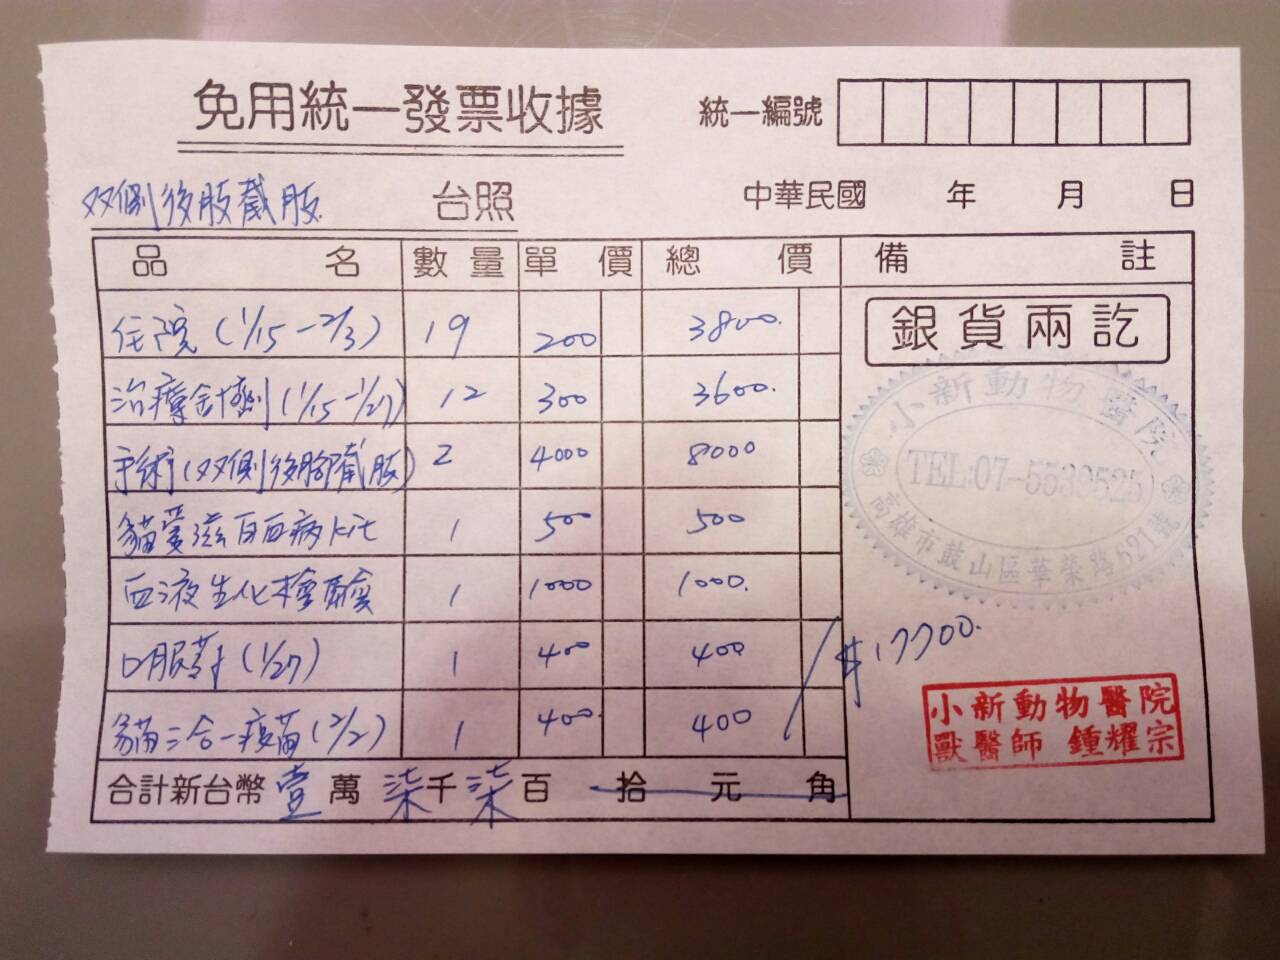 免用統一發票收據
統一編號
双側後肢截肢 台照
中華民國 年 月 日
品名 數量 單價 總價 備註
住院(1/15-2/3) 19 200 3800.
治療針劑(1/15-1/27) 12 300 3600.
手術(双側後腳截肢) 2 4000 8000
貓愛滋白血病kit 1 500 500
血液生化檢驗 1 1000 1000.
口服藥(1/27) 1 400 400
貓三合一疫苗(2/2) 1 400. 400
合計新台幣壹萬柒千柒百拾元角
銀貨兩訖
小新動物醫院
TEL:07-5539525
高雄市鼓山區華榮路621號
$17700.
小新動物醫院
獸醫師 鍾耀宗